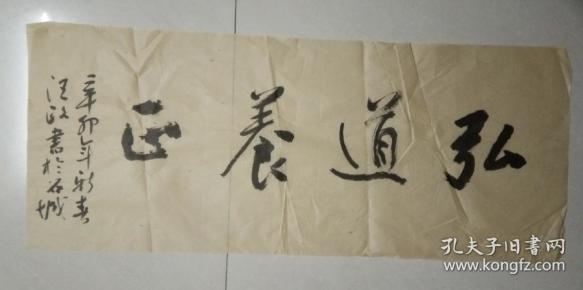 弘道養正
辛卯年新春
汪政書於谷城
孔夫子旧书网
www.kongfz.com